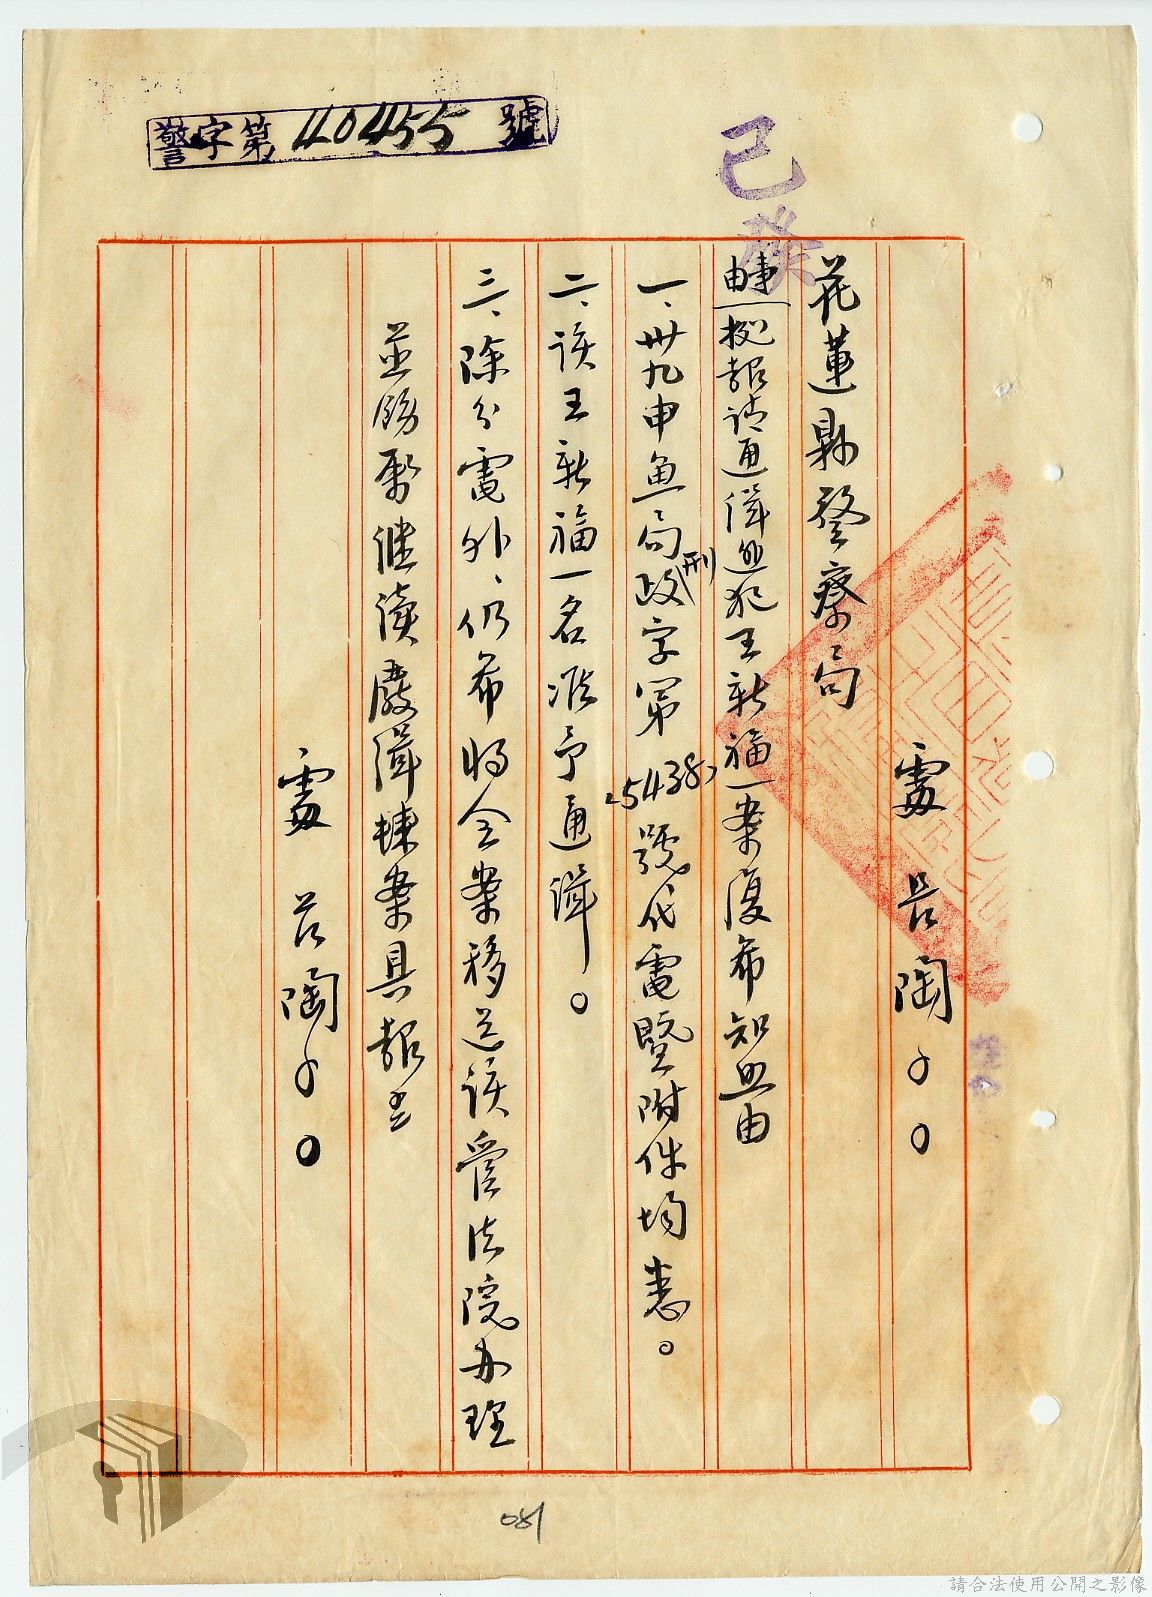 警字第40455號
已發
處長陶〇〇
花蓮縣警察局
事由 據報請通緝逃犯王新福一案復希知照由
一、卅九申魚局政(刑)字第25438號代電暨附件均悉。
二、該王新福一名准予通緝。
三、除分電外、仍希將全案移送該管法院办理
並飭屬继續嚴緝擄案具報
處長陶〇〇
081
請合法使用公開之影像